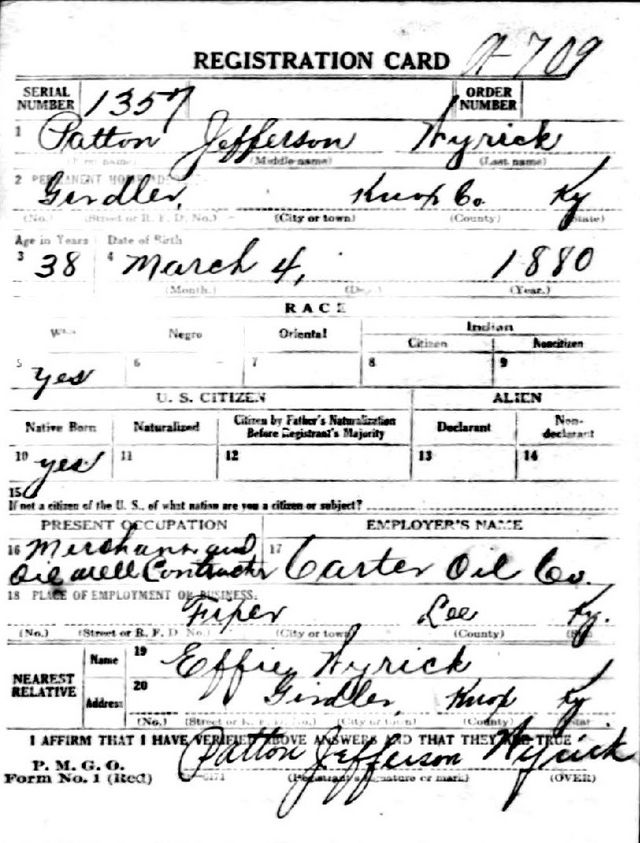 REGISTRATION CARD A-709
SERIAL NUMBER 1357 ORDER NUMBER
1 Patton Jefferson Wyrick
(First name) (Middle name) (Last name)
2 PERMANENT HOME ADDRESS:
Girdler, Knox Co. Ky
(No.) (Street or R. F. D. No.) (City or town) (County) (State)
Age in Years Date of Birth
3 38 4 March 4, 1880
(Month.) (Day.) (Year.)
RACE
White Negro Oriental Indian
Citizen Noncitizen
5 yes 6 7 8 9
U. S. CITIZEN ALIEN
Native Born Naturalized Citizen by Father's Naturalization Before Registrant's Majority Declarant Non-declarant
10 yes 11 12 13 14
15
If not a citizen of the U. S., of what nation are you a citizen or subject?
PRESENT OCCUPATION EMPLOYER'S NAME
16 Merchant and 17
Oil well Contractor Carter Oil Co.
18 PLACE OF EMPLOYMENT OR BUSINESS:
Lee Ky.
(No.) (Street or R. F. D. No.) (City or town) (County) (State)
NEAREST RELATIVE Name 19 Effie Wyrick
Address 20 Girdler, Knox Ky.
(No.) (Street or R. F. D. No.) (City or town) (County) (State)
I AFFIRM THAT I HAVE VERIFIED ABOVE ANSWERS AND THAT THEY ARE TRUE
P. M. G. O. Patton Jefferson Wyrick
Form No. 1 (Red) (Registrant's signature or mark) (OVER)